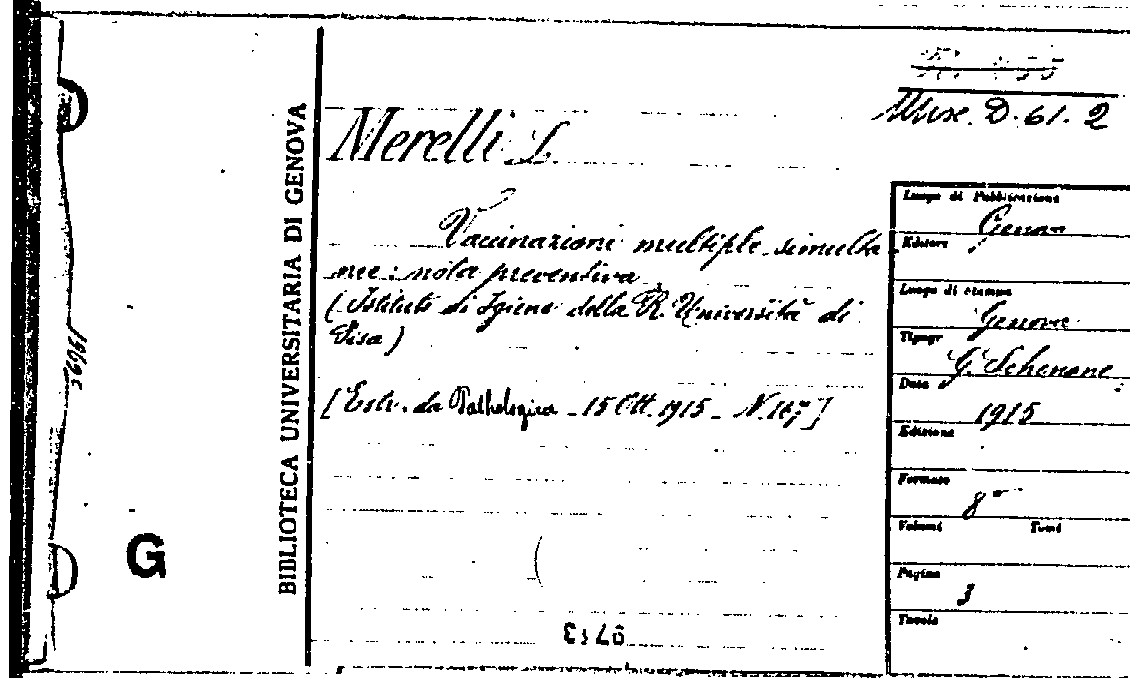 Misc. D. 61. 2
Merelli L.
Vaccinazioni multiple simulta
nee: nota preventiva
(Istituto di Igiene della R. Università di
Pisa)
[Estr. da Pathologica - 15 Ott. 1915 - N. 167]
BIBLIOTECA UNIVERSITARIA DI GENOVA
G
Luogo di Pubblicazione
Genova
Editore
Luogo di stampa
Genova
Tipogr
G. Schenone
Data
1915
Edizione
Formato
8°
Volumi Tomi
Pagine
3
Tavole